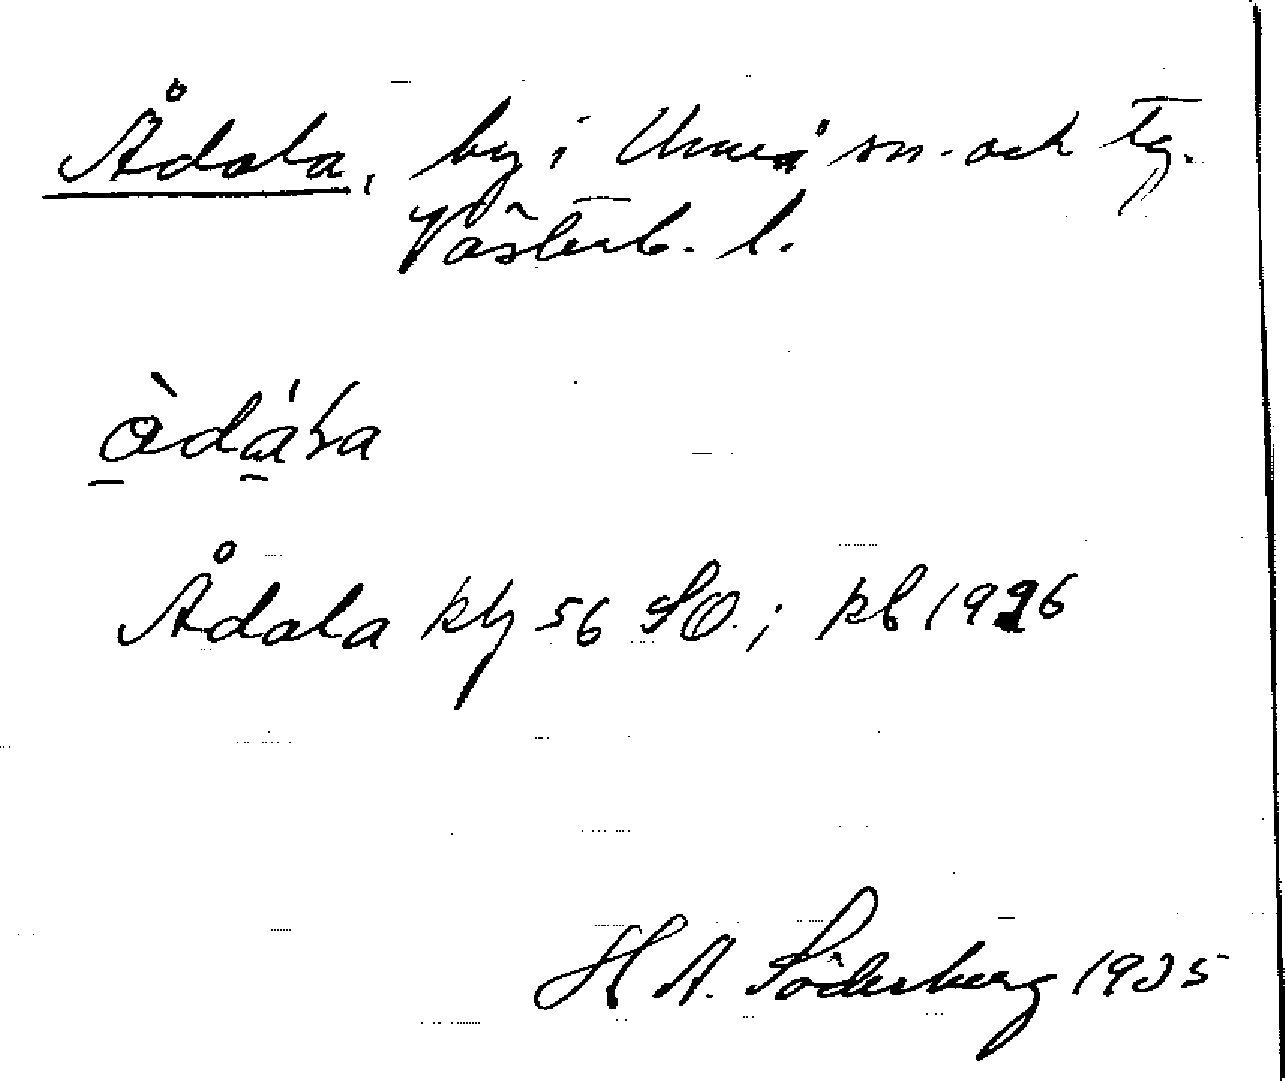 Ådala, by i Umeå sn. och tg.
Västerb. l.
àdáɽa
Ådala kby 56 SO.; kb 1926
H A. Söderberg 1935